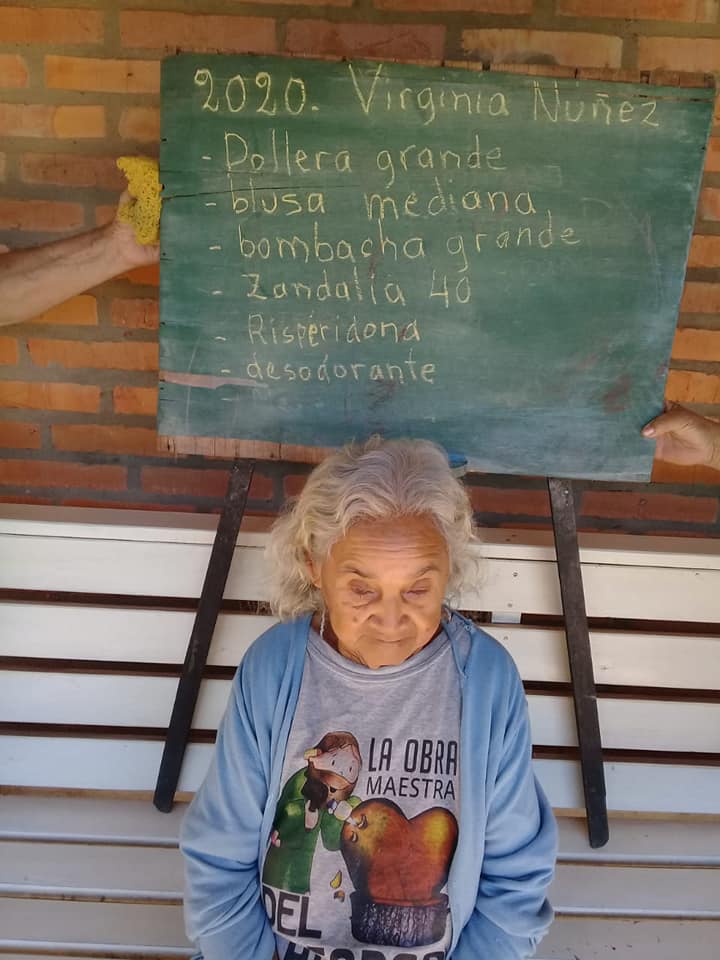 2020. Virginia Nuñez
- Pollera grande
- blusa mediana
- bombacha grande
- Zandalia 40
- Rispéridona
- desodorante
LA OBRA
MAESTRA
DEL